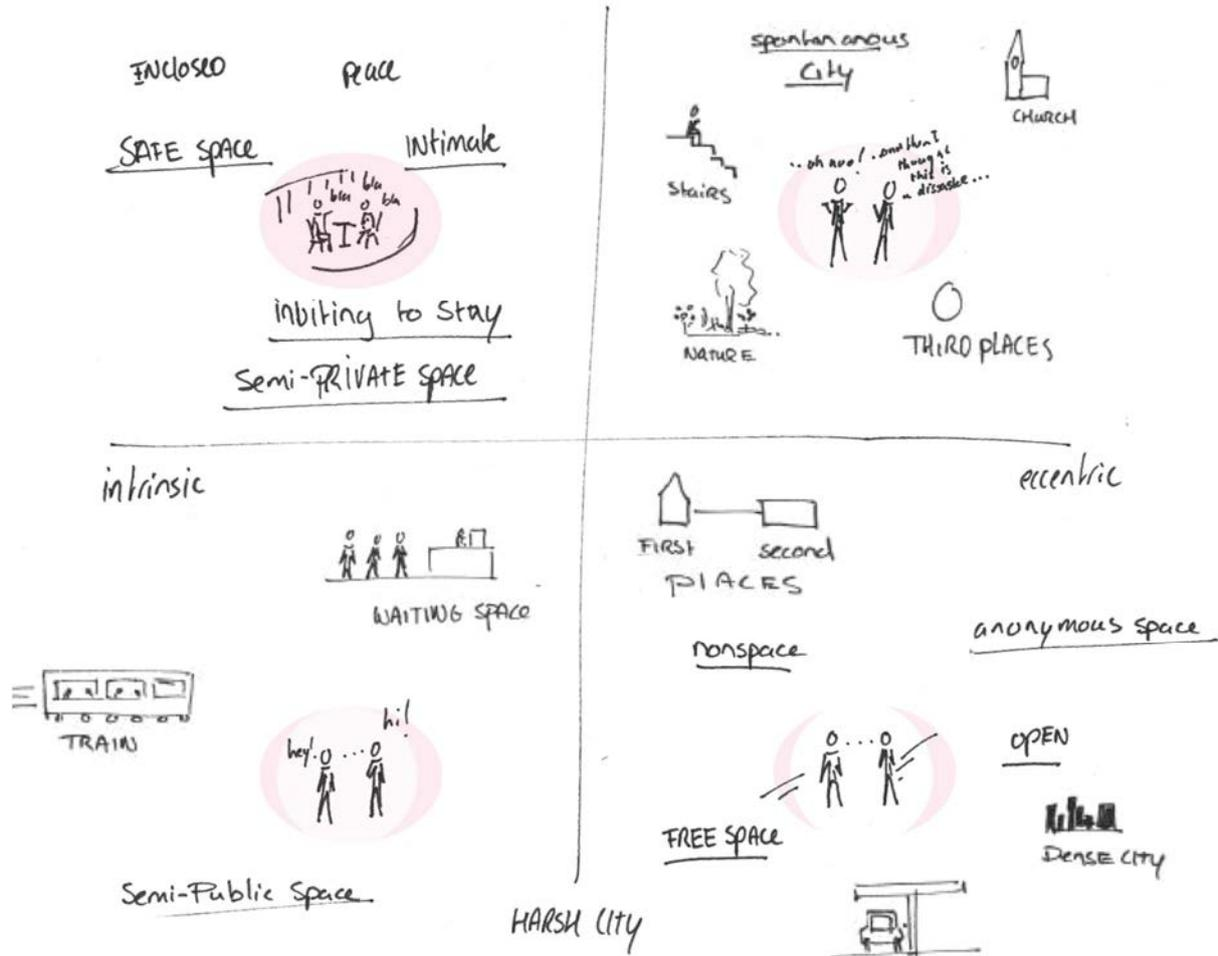 INCLOSED
PEACE
SAFE SPACE
INtimate
bla
bla
bla
inbiting to stay
Semi-PRIVATE SPACE
spontananous
City
CHURCH
Stairs
..oh nuo!
..and then I
thought
this is
a disaster...
NATURE
THIRD PLACES
intrinsic
eccentric
WAITING SPACE
TRAIN
hey!
...
hi!
Semi-Public Space
HARSH CITY
FIRST
second
PLACES
nonspace
anonymous space
...
OPEN
FREE SPACE
DENSE CITY